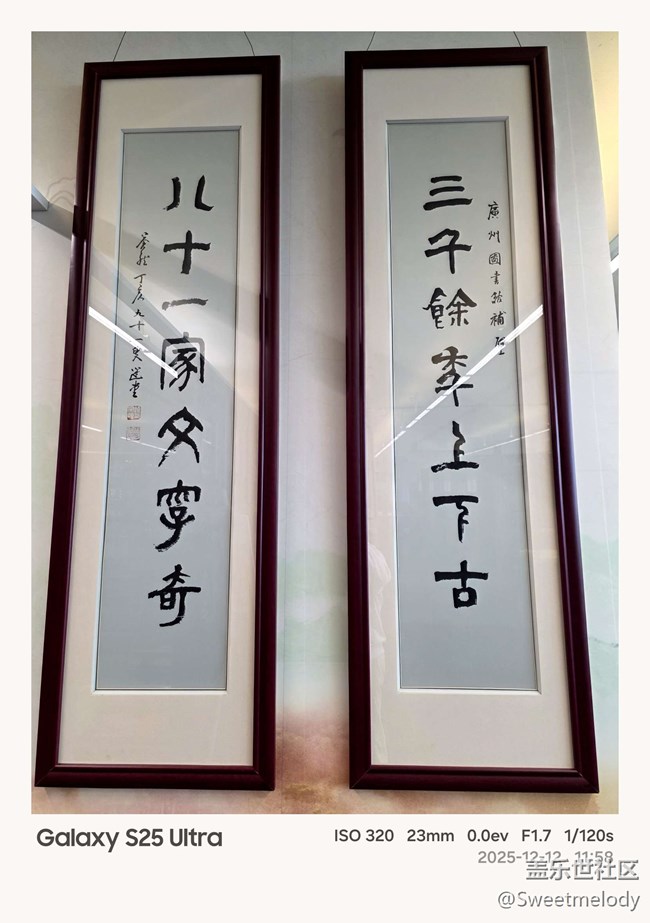 廣州圖書館補壁
三千餘秊上下古
八十一家文字奇
丁亥九十一叟選堂
Galaxy S25 Ultra
ISO 320 23mm 0.0ev F1.7 1/120s
2025-12-12 11:58
盖乐世社区
@Sweetmelody